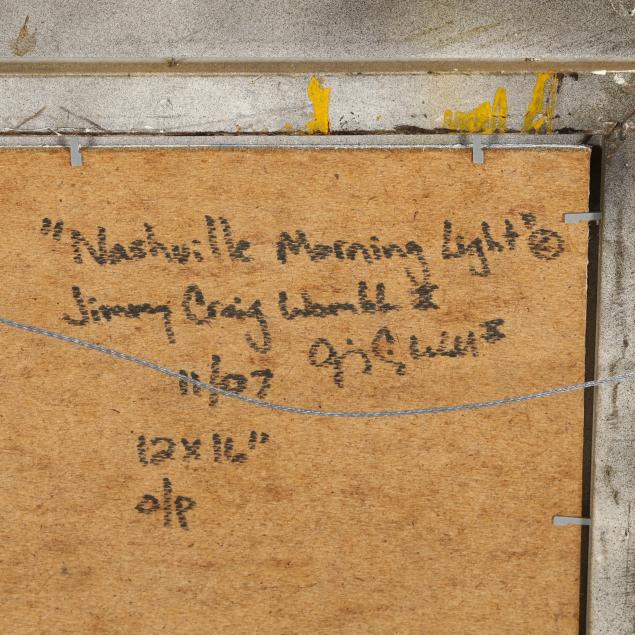 "Nashville Morning Light" ©
Jimmy Craig Womble II
11/07
12x16"
o/p